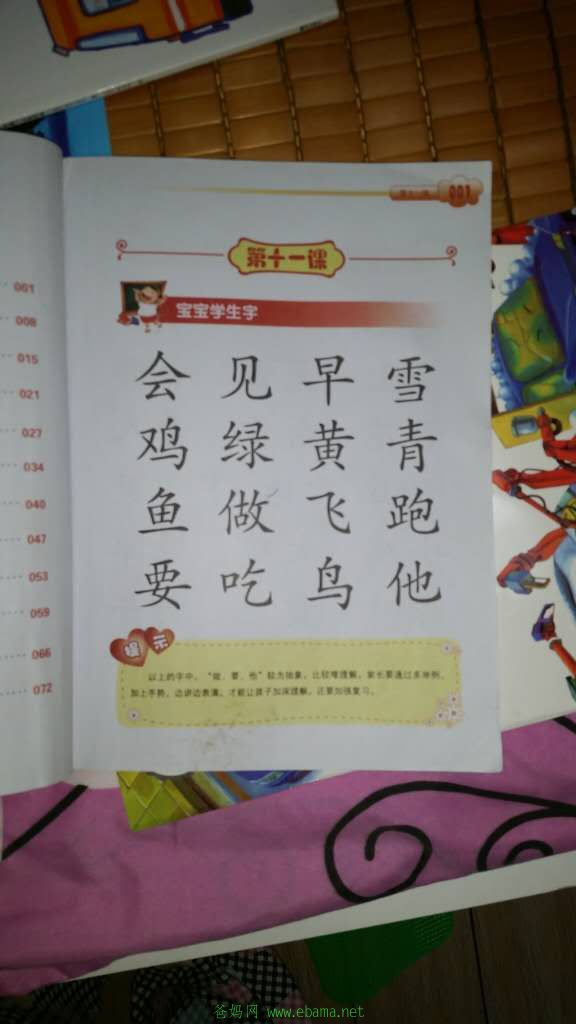 第十一课 001
第十一课
宝宝学生字
会 见 早 雪
鸡 绿 黄 青
鱼 做 飞 跑
要 吃 鸟 他
提示
以上的字中，“做、要、他”较为抽象，比较难理解，家长要通过多举例，
加上手势，边讲边表演，才能让孩子加深理解，还要加强复习。
001
008
015
021
027
034
040
047
053
059
066
072
爸妈网 www.ebama.net